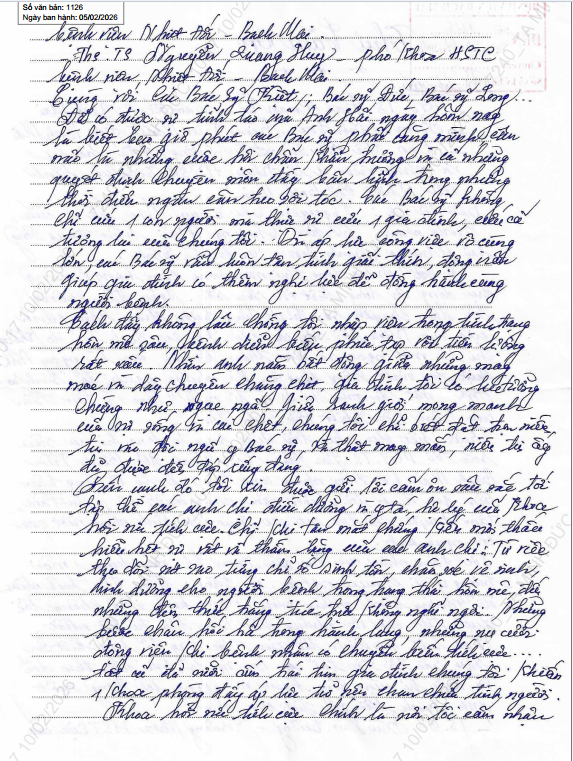 Số văn bản: 1126
Ngày ban hành: 05/02/2026
bệnh viện Nhiệt Đới - Bạch Mai.
Ths. TS Nguyễn Quang Huy - phó khoa HSTC
bệnh viện Nhiệt Đới - Bạch Mai.
Cùng với các Bác sỹ Triết; Bác sỹ Đức, Bác sỹ Long...
Để có được sự tỉnh táo của Anh Hải ngày hôm nay
là biết bao giờ phút các Bác sỹ phải căng mình, cân
não là những cuộc hội chẩn khẩn trương và cả những
quyết định chuyên môn đầy bản lĩnh trong những
thời điểm ngàn cân treo sợi tóc. Các Bác sỹ không
chỉ cứu 1 con người mà thực sự cứu 1 gia đình, cứu cả
tương lai của chúng tôi. Dù áp lực công việc vô cùng
lớn, các Bác sỹ vẫn luôn tận tình giải thích, động viên
giúp gia đình có thêm nghị lực để đồng hành cùng
người bệnh.
Cách đây không lâu chồng tôi nhập viện trong tình trạng
hôn mê sâu, bệnh diễn biến phức tạp với tiên lượng
rất xấu. Nhìn anh nằm bất động giữa những máy
móc và dây chuyền chằng chịt, gia đình tôi có lúc tưởng
chừng như gục ngã. Giữa ranh giới mong manh
của sự sống và cái chết, chúng tôi chỉ biết đặt trọn niềm
tin vào đội ngũ y Bác sỹ, và thật may mắn, niềm tin ấy
đã được đền đáp xứng đáng.
Bên cạnh đó tôi xin được gửi lời cảm ơn sâu sắc tới
tập thể các anh chị điều dưỡng và y tá, hộ lý của khoa
hồi sức tích cực. Chỉ khi tận mắt chứng kiến mới thấu
hiểu hết sự vất vả thầm lặng của các anh chị: Từ việc
theo dõi sát sao từng chỉ số sinh tồn, chăm sóc vệ sinh
dinh dưỡng cho người bệnh trong trạng thái hôn mê, đến
những đêm thức trắng túc trực không nghỉ ngơi. Những
bước chân hối hả trong hành lang, những nụ cười
động viên khi bệnh nhân có chuyển biến tích cực...
tất cả đã sưởi ấm trái tim gia đình chúng tôi. khiến
1 khoa phòng đầy áp lực trở nên chan chứa tình người.
Khoa hồi sức tích cực chính là nơi tôi cảm nhận